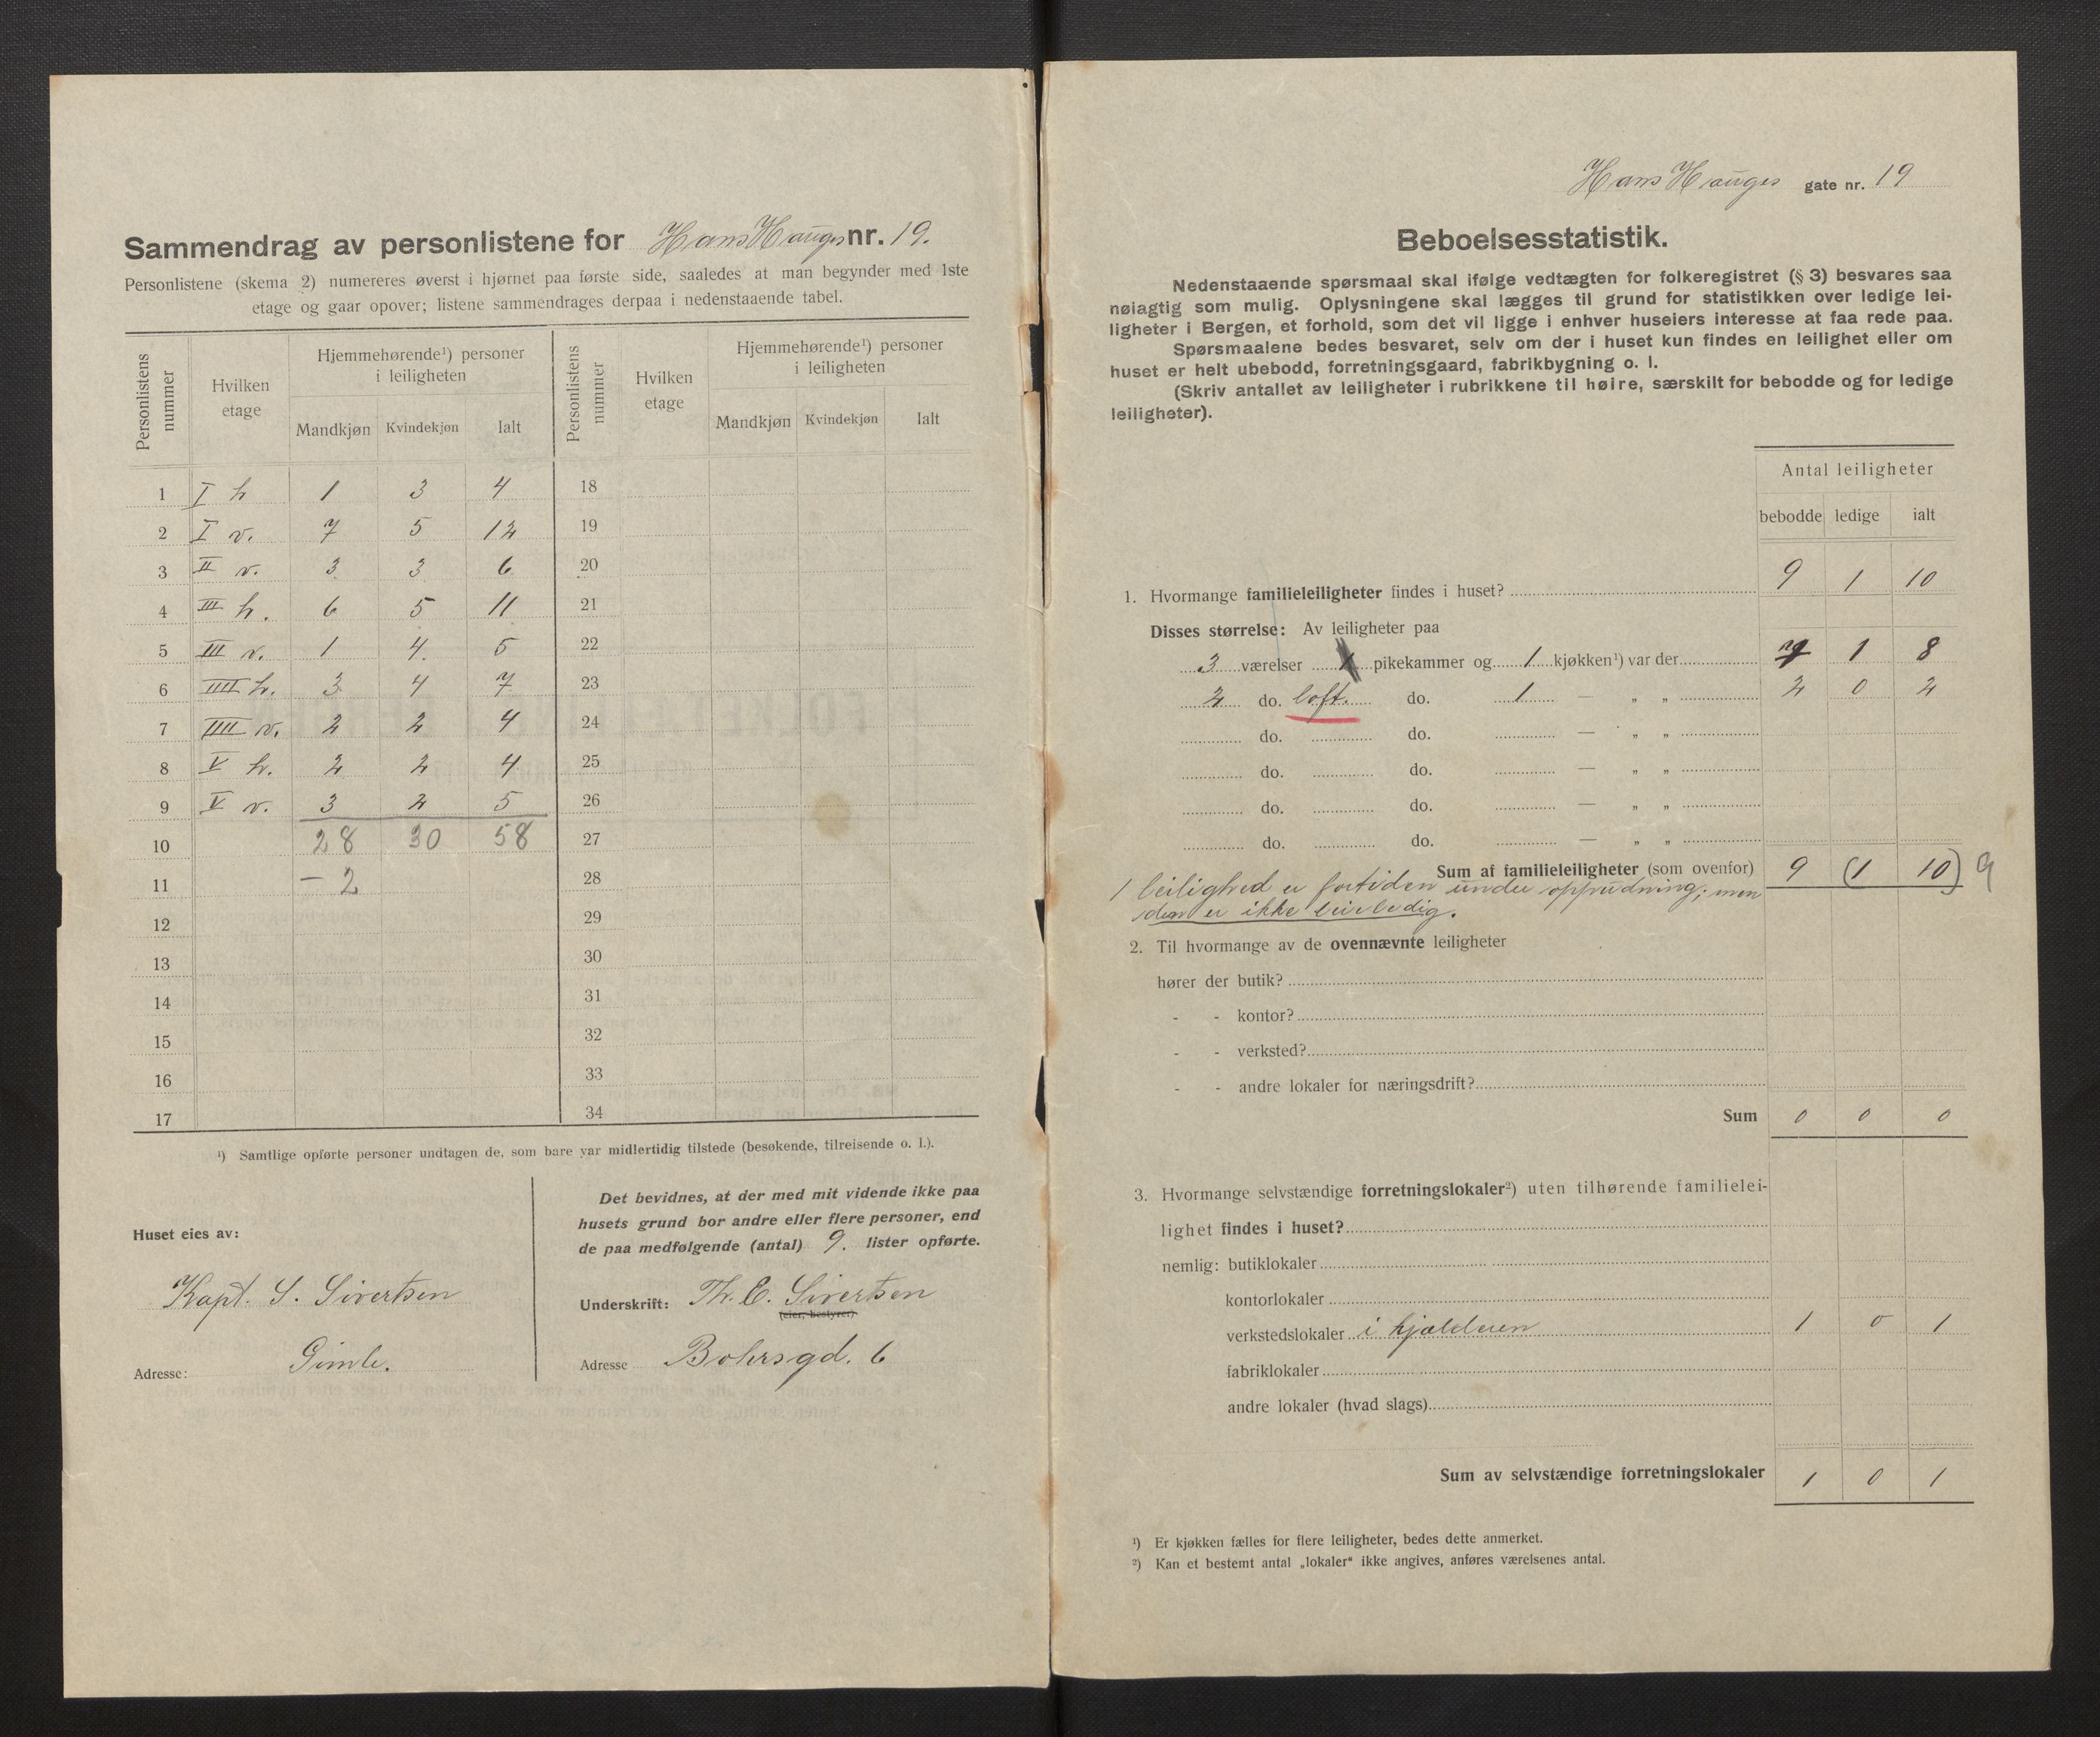 Sammendrag av personlistene for Hans Hauges nr. 19.
Personlistene (skema 2) numereres øverst i hjørnet paa første side, saaledes at man begynder med 1ste
etage og gaar opover; listene sammendrages derpaa i nedenstaaende tabel.
Personlistens nummer
Hvilken etage
Hjemmehørende¹) personer i leiligheten
Mandkjøn Kvindekjøn Ialt
Personlistens nummer
Hvilken etage
Hjemmehørende¹) personer i leiligheten
Mandkjøn Kvindekjøn Ialt
1 I h 1 3 4 18
2 I v. 7 5 12 19
3 II v. 3 3 6 20
4 III h. 6 5 11 21
5 III v. 1 4 5 22
6 IIII h. 3 4 7 23
7 IIII v. 2 2 4 24
8 V h. 2 2 4 25
9 V v. 3 2 5 26
10 28 30 58 27
11 – 2 28
12 29
13 30
14 31
15 32
16 33
17 34
¹) Samtlige opførte personer undtagen de, som bare var midlertidig tilstede (besøkende, tilreisende o. l.).
Huset eies av:
Kapt. S. Sivertsen
Adresse: Gimle.
Det bevidnes, at der med mit vidende ikke paa
husets grund bor andre eller flere personer, end
de paa medfølgende (antal) 9. lister opførte.
Underskrift: Th. E. Sivertsen
(eier, bestyrer)
Adresse Bohrsgd. 6
Hans Hauges gate nr. 19
Beboelsesstatistik.
Nedenstaaende spørsmaal skal ifølge vedtægten for folkeregistret (§ 3) besvares saa
nøiagtig som mulig. Oplysningene skal lægges til grund for statistikken over ledige lei-
ligheter i Bergen, et forhold, som det vil ligge i enhver huseiers interesse at faa rede paa.
Spørsmaalene bedes besvaret, selv om der i huset kun findes en leilighet eller om
huset er helt ubebodd, forretningsgaard, fabrikbygning o. l.
(Skriv antallet av leiligheter i rubrikkene til høire, særskilt for bebodde og for ledige
leiligheter).
Antal leiligheter
bebodde ledige ialt
1. Hvormange familieleiligheter findes i huset? 9 1 10
Disses størrelse: Av leiligheter paa
3 værelser 1 pikekammer og 1 kjøkken¹) var der 7 1 8
2 do. loft. do. 1 — „ „ 2 0 2
do. do. — „ „
do. do. — „ „
do. do. — „ „
do. do. — „ „
Sum af familieleiligheter (som ovenfor) 9 (1 10) 9
1 leilighed er fortiden under oppudsning; men
den er ikke leieledig.
2. Til hvormange av de ovennævnte leiligheter
hører der butik?
- - kontor?
- - verksted?
- - andre lokaler for næringsdrift?
Sum 0 0 0
3. Hvormange selvstændige forretningslokaler²) uten tilhørende familielei-
lighet findes i huset?
nemlig: butiklokaler
kontorlokaler
verkstedslokaler i kjælderen 1 0 1
fabriklokaler
andre lokaler (hvad slags)
Sum av selvstændige forretningslokaler 1 0 1
¹) Er kjøkken fælles for flere leiligheter, bedes dette anmerket.
²) Kan et bestemt antal „lokaler“ ikke angives, anføres værelsenes antal.